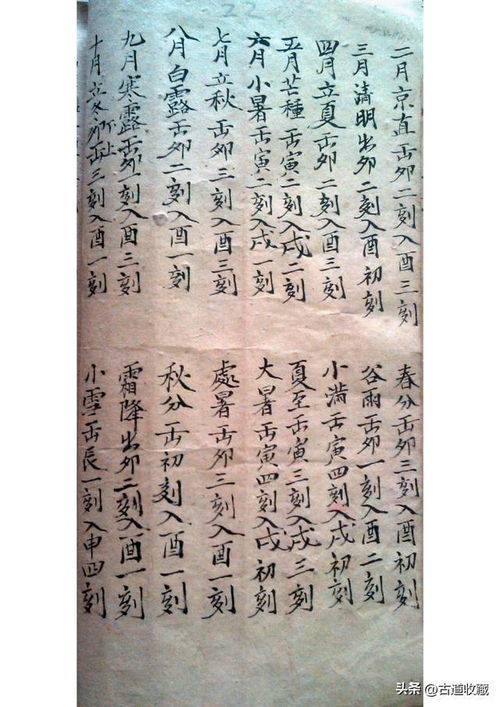 22
二月京直出卯二刻入酉三刻 春分出卯三刻入酉初刻
三月清明出卯二刻入酉初刻 谷雨出卯一刻入酉二刻
四月立夏出卯二刻入酉三刻 小满出寅四刻入戌初刻
五月芒種出寅二刻入戌二刻 夏至出寅三刻入戌三刻
六月小暑出寅二刻入戌一刻 大暑出寅四刻入戌初刻
七月立秋出卯三刻入酉三刻 處暑出卯三刻入酉一刻
八月白露出卯二刻入酉一刻 秋分出初刻入酉一刻
九月寒露出卯一刻入酉三刻 霜降出卯二刻入酉一刻
十月立冬卯出三刻入酉一刻 小雪出辰一刻入申四刻
头条 @古道收藏